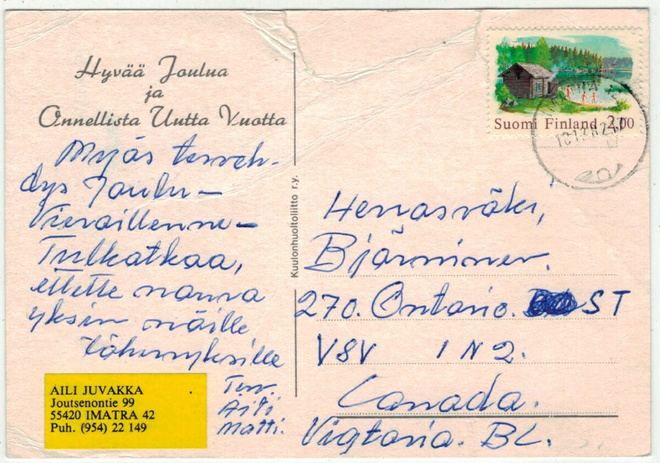 Hyvää Joulua
ja
Onnellista Uutta Vuotta
Myös terveh-
dys Joulu-
Vieraillenne-
Tulkatkaa,
ettette naura
yksin näille
Tähmyksille
Terv.
Aili
Matti.
AILI JUVAKKA
Joutsenontie 99
55420 IMATRA 42
Puh. (954) 22 149
Kuulonhuoltoliitto r.y.
Suomi Finland 2,00
Herrasväki,
Bjärninen.
270. Ontario. ST
V8V 1N2.
Canada.
Vigtoria. BC.